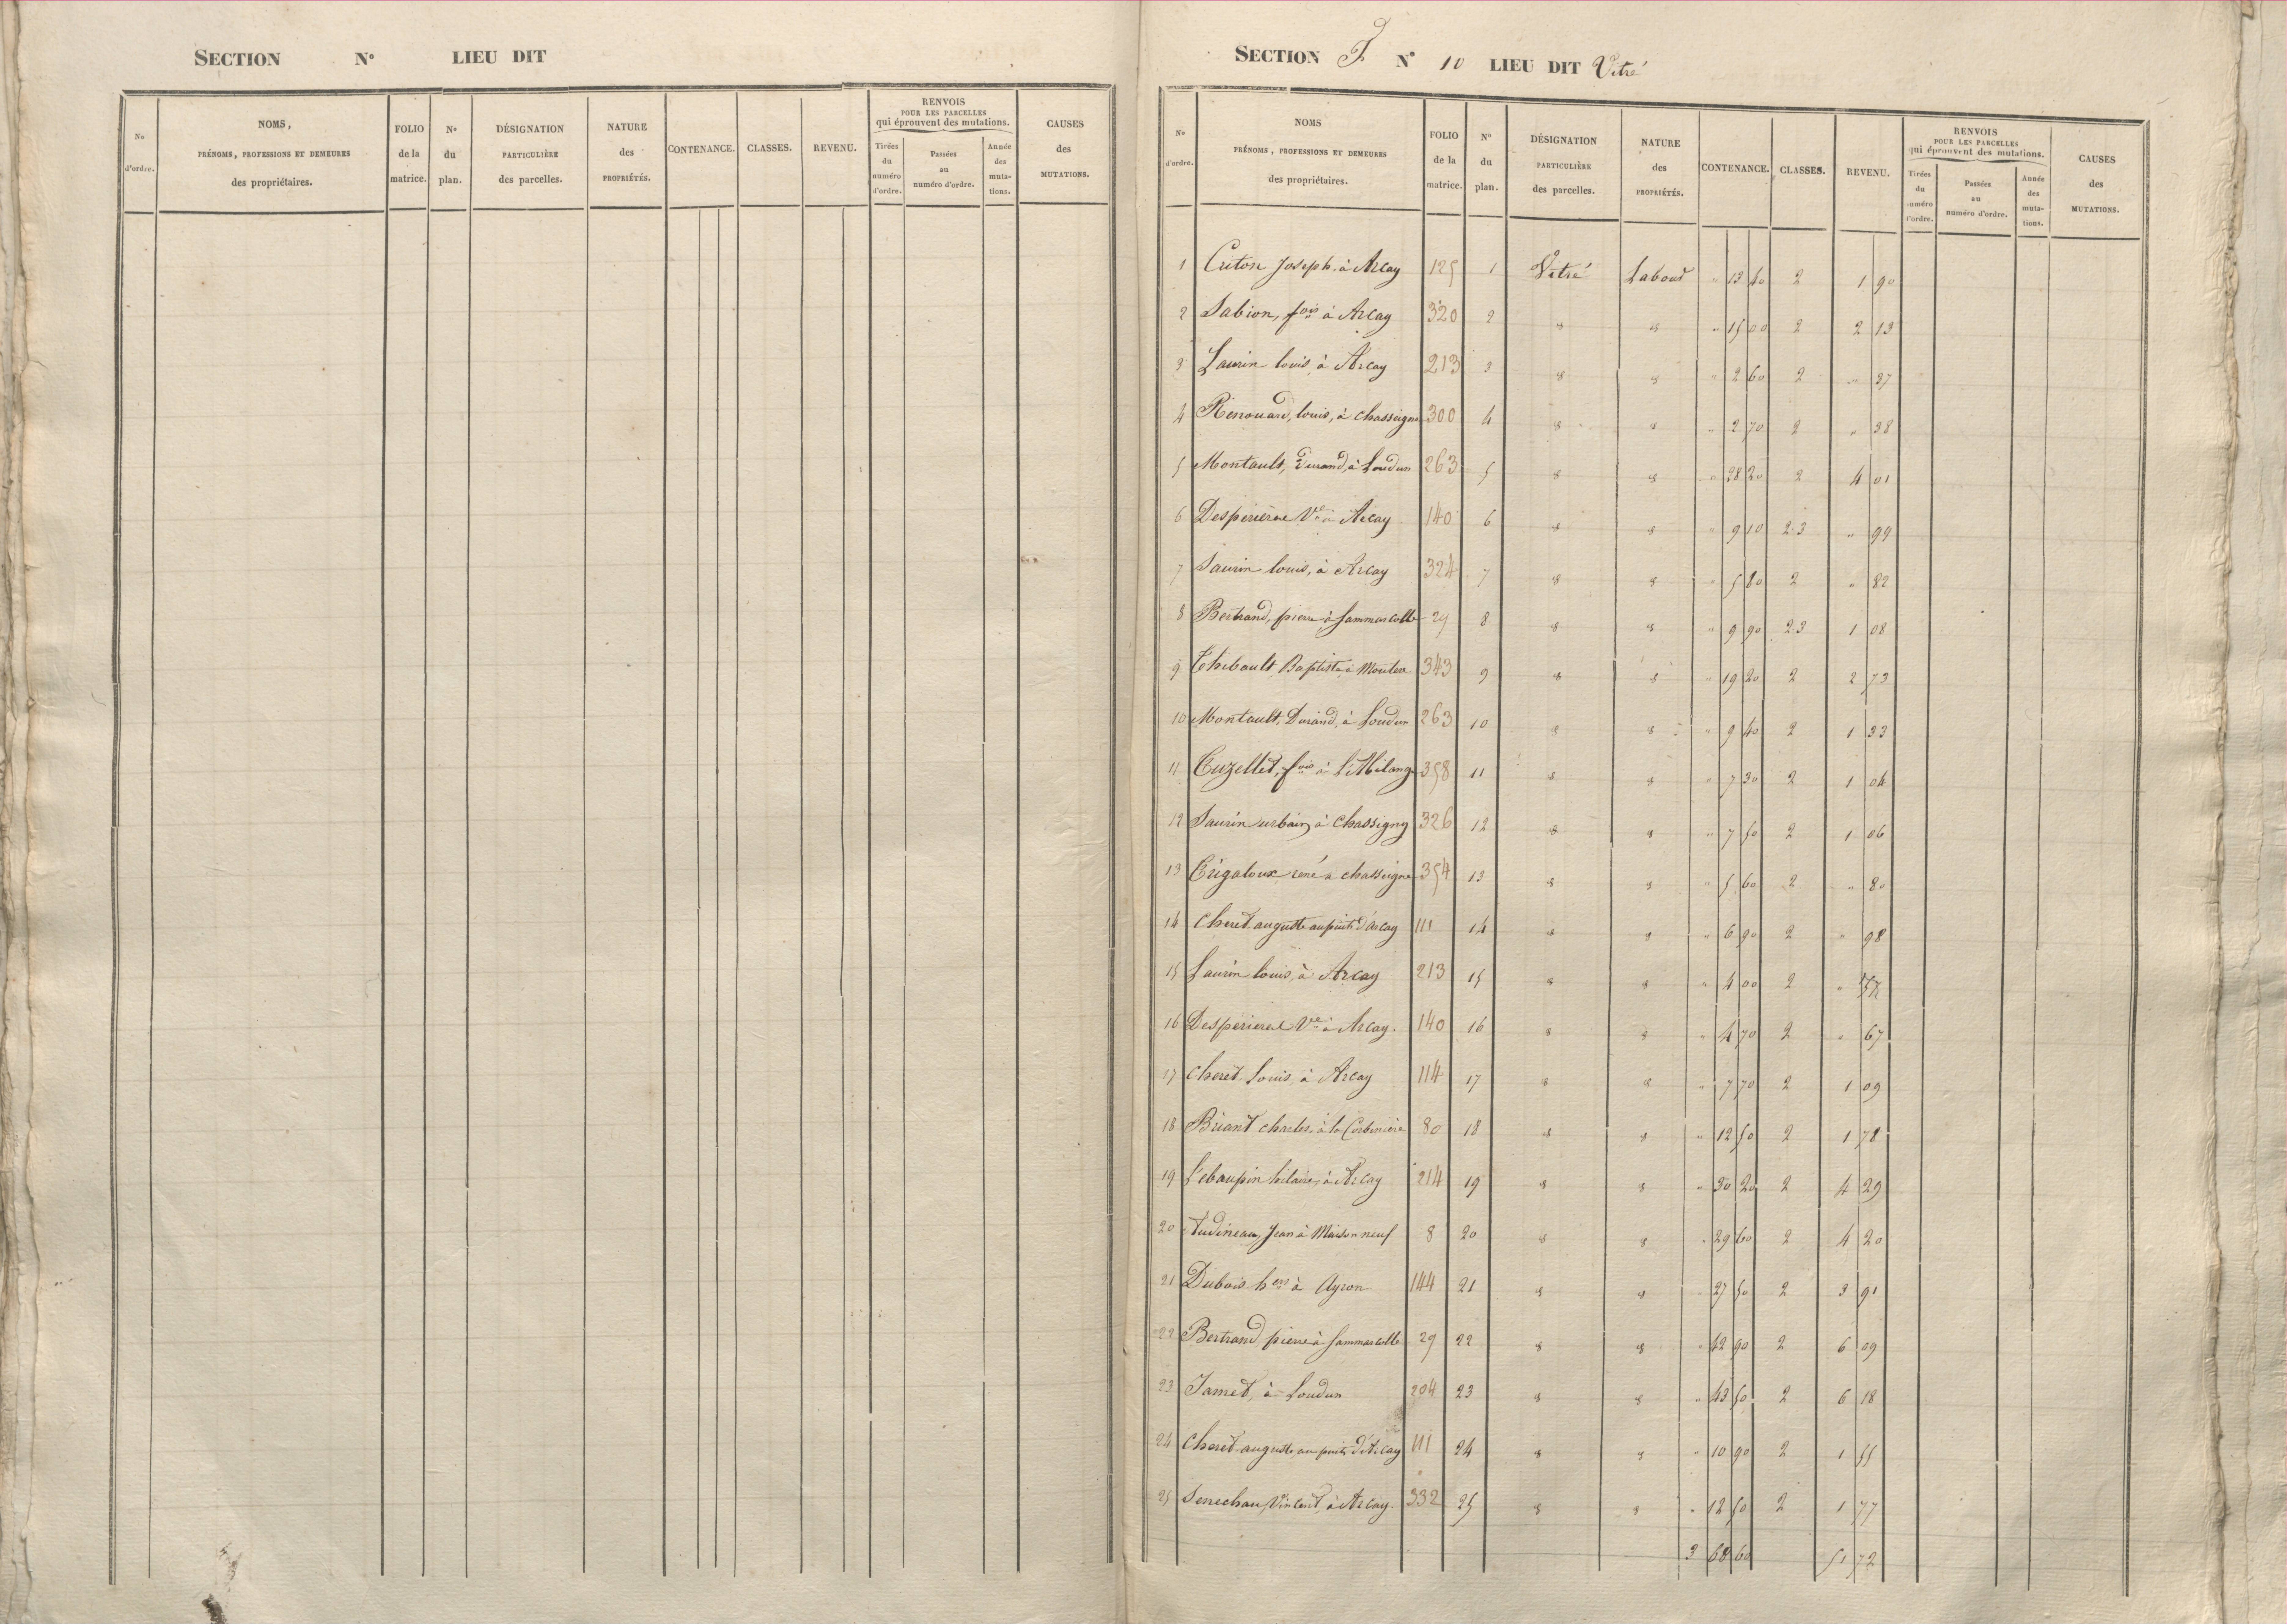 SECTION N° LIEU DIT
No d'ordre.
NOMS, PRÉNOMS, PROFESSIONS ET DEMEURES des propriétaires.
FOLIO de la matrice.
N° du plan.
DÉSIGNATION PARTICULIÈRE des parcelles.
NATURE des PROPRIÉTÉS.
CONTENANCE.
CLASSES.
REVENU.
RENVOIS POUR LES PARCELLES qui éprouvent des mutations.
Tirées du numéro d'ordre.
Passées au numéro d'ordre.
Année des mutations.
CAUSES des MUTATIONS.
SECTION F N° 10 LIEU DIT Vitré
No d'ordre.
NOMS PRÉNOMS, PROFESSIONS ET DEMEURES des propriétaires.
FOLIO de la matrice.
N° du plan.
DÉSIGNATION PARTICULIÈRE des parcelles.
NATURE des PROPRIÉTÉS.
CONTENANCE.
CLASSES.
REVENU.
RENVOIS POUR LES PARCELLES qui éprouvent des mutations.
Tirées du numéro d'ordre.
Passées au numéro d'ordre.
Année des mutations.
CAUSES des MUTATIONS.
1 Criton Joseph, à Arcay 125 1 Vitré Labour " 13 40 2 1 90
2 Sabion, fois à Arcay 320 2 " " " 15 00 2 2 13
3 Laurin louis, à Arcay 213 3 " " " 2 60 2 " 37
4 Renouard, louis, à chasseigne 300 4 " " " 2 70 2 " 38
5 Montault, Durand, à Loudun 263 5 " " " 28 20 2 4 01
6 Desperierre Ve à Arcay 140 6 " " " 9 10 2-3 " 99
7 Saurin louis, à Arcay 324 7 " " " 5 80 2 " 82
8 Bertrand, pierre à Sammarcolle 29 8 " " " 9 90 2-3 1 08
9 Thibault Baptiste à Mouterre 343 9 " " " 19 20 2 2 73
10 Montault, Durand, à Loudun 263 10 " " " 9 40 2 1 33
11 fois à 358 11 " " " 7 30 2 1 04
12 Saurin urbain, à Chassigny 326 12 " " " 7 50 2 1 06
13 Trigaloux rené à chasseigne 354 13 " " " 5 60 2 " 80
14 Cheret auguste au puits d'arcay 111 14 " " " 6 90 2 " 98
15 Laurin louis, à Arcay 213 15 " " " 4 00 2 " 57
16 Desperierre Ve à Arcay. 140 16 " " " 4 70 2 " 67
17 Cheret Louis, à Arcay 114 17 " " " 7 70 2 1 09
18 Briant charles, à la Corbinière 80 18 " " " 12 50 2 1 78
19 Lebaupin hilaire, à Arcay 214 19 " " " 30 20 2 4 29
20 Audineau, Jean à Maison neuf 8 20 " " " 29 60 2 4 20
21 Dubois hers à Ayron 144 21 " " " 27 50 2 3 91
22 Bertrand pierre à Sammarcolle 29 22 " " " 42 90 2 6 09
23 Jamet, à Loudun 204 23 " " " 43 50 2 6 18
24 Cheret auguste, au puits d'Arcay 111 24 " " " 10 90 2 1 55
25 Senechau, Vincent, à Arcay. 332 25 " " " 12 50 2 1 77
3 68 60 51 72